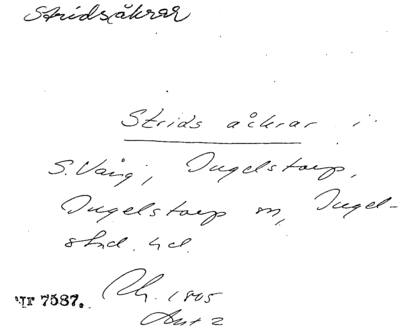 Stridsåkrar
Strids åkrar i
S. Vång, Ingelstorp,
Ingelstorp sn, Ingel-
stad hd.
Nr 7587. Rh. 1805
Akt 2